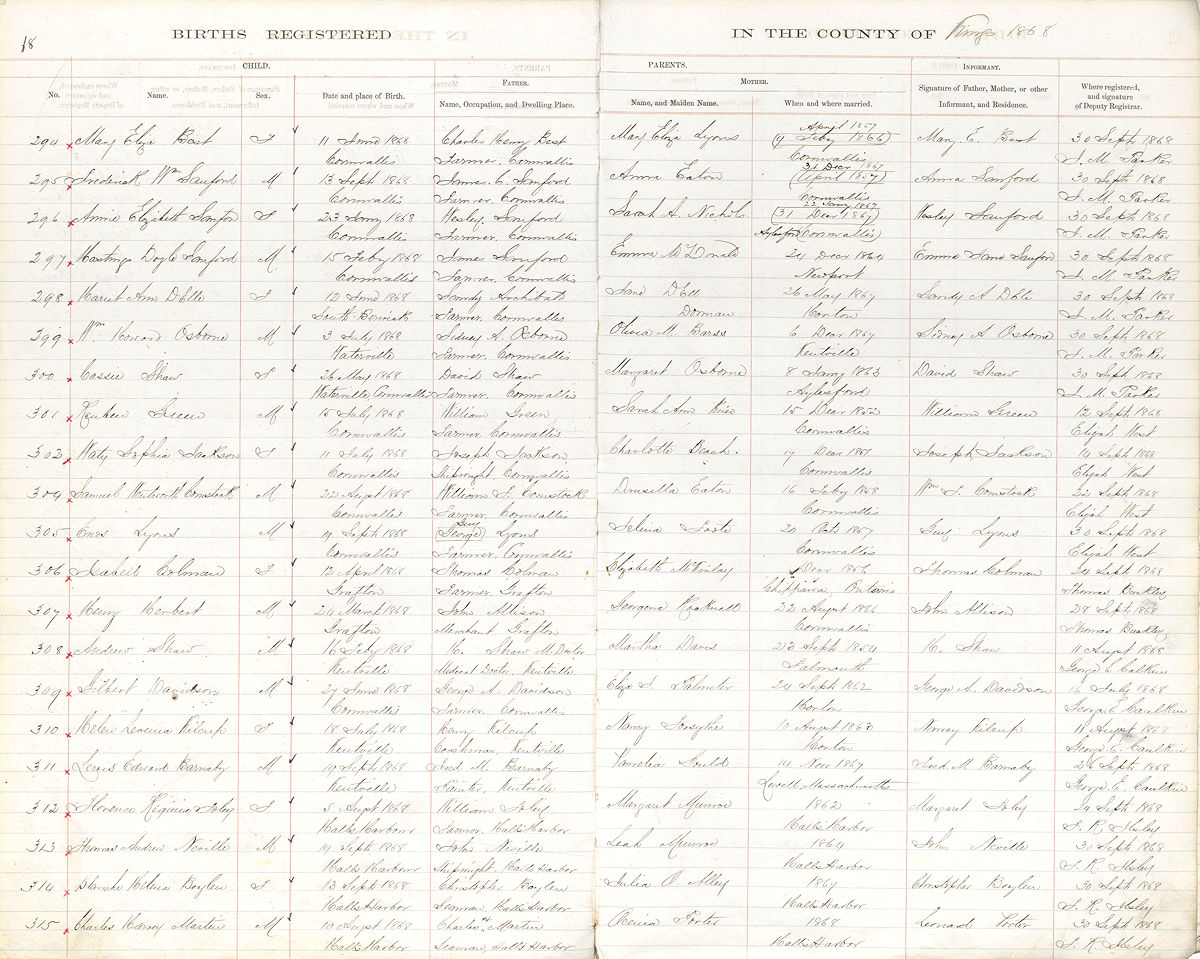 18
BIRTHS REGISTERED
IN THE COUNTY OF Kings 1868
CHILD.
PARENTS.
INFORMANT.
No. Name. Sex. Date and place of Birth.
FATHER.
Name, Occupation, and Dwelling Place.
MOTHER.
Name, and Maiden Name. When and where married.
Signature of Father, Mother, or other
Informant, and Residence.
Where registered,
and signature
of Deputy Registrar.
April 1857
294 Mary Eliza Best F 11 June 1868 Charles Henry Best Mary Eliza Lyons (9 Feby 1866) Mary E. Best 30 Sept 1868
Cornwallis Farmer. Cornwallis Cornwallis J. M. Parker
31 Decr 1867
295 Frederick Wm Sanford M 13 Sept 1868 James C. Sanford Anna Eaton (April 1857) Anna Sanford 30 Sept 1868
Cornwallis Farmer. Cornwallis Cornwallis J. M. Parker
22 Jany 1867
296 Annie Elizabeth Sanford F 23 Jany 1868 Wesley Sanford Sarah A. Nichols (31 Decr 1867) Wesley Sanford 30 Sept 1868
Cornwallis Farmer. Cornwallis Aylesford (Cornwallis) J. M. Parker
297 Hastings Doyle Sanford M 15 Feby 1868 James Sanford Emma McDonald 24 Decr 1864 Emma Jane Sanford 30 Sept 1868
Cornwallis Farmer. Cornwallis Newport J. M. Parker
298 Hariet Ann F 12 June 1868 Sandy Archibald Jane 26 May 1867 Sandy A 30 Sept 1868
South Berwick Farmer. Cornwallis Dorman Horton J. M. Parker
299 Wm Howard Osborne M 3 July 1868 Sidney A. Osborne Olivia M. Barss 6 Decr 1867 Sidney A Osborne 30 Sept 1868
Waterville Farmer. Cornwallis Kentville J. M. Parker
300 Cassie Shaw F 26 May 1868 David Shaw Margaret Osborne 8 Jany 1863 David Shaw 30 Sept 1868
Waterville Cornwallis Farmer. Cornwallis Aylesford J. M. Parker
301 Reuben Green M 15 July 1868 William Green Sarah Ann 15 Decr 1852 William Green 12 Sept 1868
Cornwallis Farmer. Cornwallis Cornwallis Elijah West
302 Sophia Jackson F 11 July 1868 Joseph Jackson Charlotte Beach. 17 Decr Joseph Jackson 14 Sept 1868
Cornwallis Shipwright, Cornwallis Cornwallis Elijah West
304 Samuel Wentworth Comstock M 22 Augst 1868 William F. Comstock Drusilla Eaton 16 Feby 1858 Wm F. Comstock 22 Sept 1868
Cornwallis Farmer. Cornwallis Cornwallis Elijah West
Guy
305 Ones Lyons M 19 Sept 1868 (George) Lyons Selina 20 Octr 1857 Guy Lyons 30 Sept 1868
Cornwallis Farmer. Cornwallis Cornwallis Elijah West
306 Isabell Colman F 12 April 1868 Thomas Colman Elizabeth McKinlay Decr 1856 Thomas Colman 24 Sept 1868
Grafton Farmer. Grafton Chippawa, Ontario Thomas Barkley
307 Henry Herbert M 24 March 1868 John Allison Georgena Rockwell 22 August 1866 John Allison 28 Sept 1868
Grafton Merchant Grafton Cornwallis Thomas Barkley
308 Andrew Shaw M 16 Feby 1868 H. Shaw M. Doctor Martha Davis 23 Sept 1854 H. Shaw 11 August 1868
Kentville Medical Doctor, Kentville Falmouth George E Calkin
309 Gilbert Davidson M 27 June 1868 George A. Davidson Eliza J. Palmeter 24 Sept 1862 George A. Davidson 16 July 1868
Cornwallis Farmer. Cornwallis Horton George E. Caulkin
310 Helen Levinia Kilcup F 18 July 1868 Henry Kilcup Nancy Forsythe 10 August 1863 Kilcup 11 August 1868
Kentville Coachman, Kentville Horton George E. Caulkin
311 Lewis Edward Barnaby M 19 Sept 1868 Fred M. Barnaby Pamelia Gould 14 Novr 1867 Fred. M Barnaby 26 Sept 1868
Kentville Painter, Kentville Lowell, Massachusetts George E. Caulkin
312 Florence F 5 August 1868 William Margaret Munroe 1862 Margaret 29 Sept 1868
Halls Harbour Farmer. Halls Harbor Halls Harbor J. R. Ilsley
313 Thomas Andrew Neville M 19 Sept 1868 John Neville Leah Munroe 1864 John Neville 31 Sept 1868
Halls Harbour Shipwright, Halls Harbor Halls Harbor J. R. Ilsley
314 Blanche Helena Boylen F 13 Sept 1868 Christopher Boylen Julia O. Alley 1867 Christopher Boylen 30 Sept 1868
Halls Harbor Seaman, Halls Harbor Halls Harbor J. R. Ilsley
315 Charles Harvey Martin M 10 August 1868 Charles H. Martin Porter 1868 Leonard Porter 30 Sept 1868
Halls Harbor Seaman, Halls Harbor Halls Harbor J. R. Ilsley